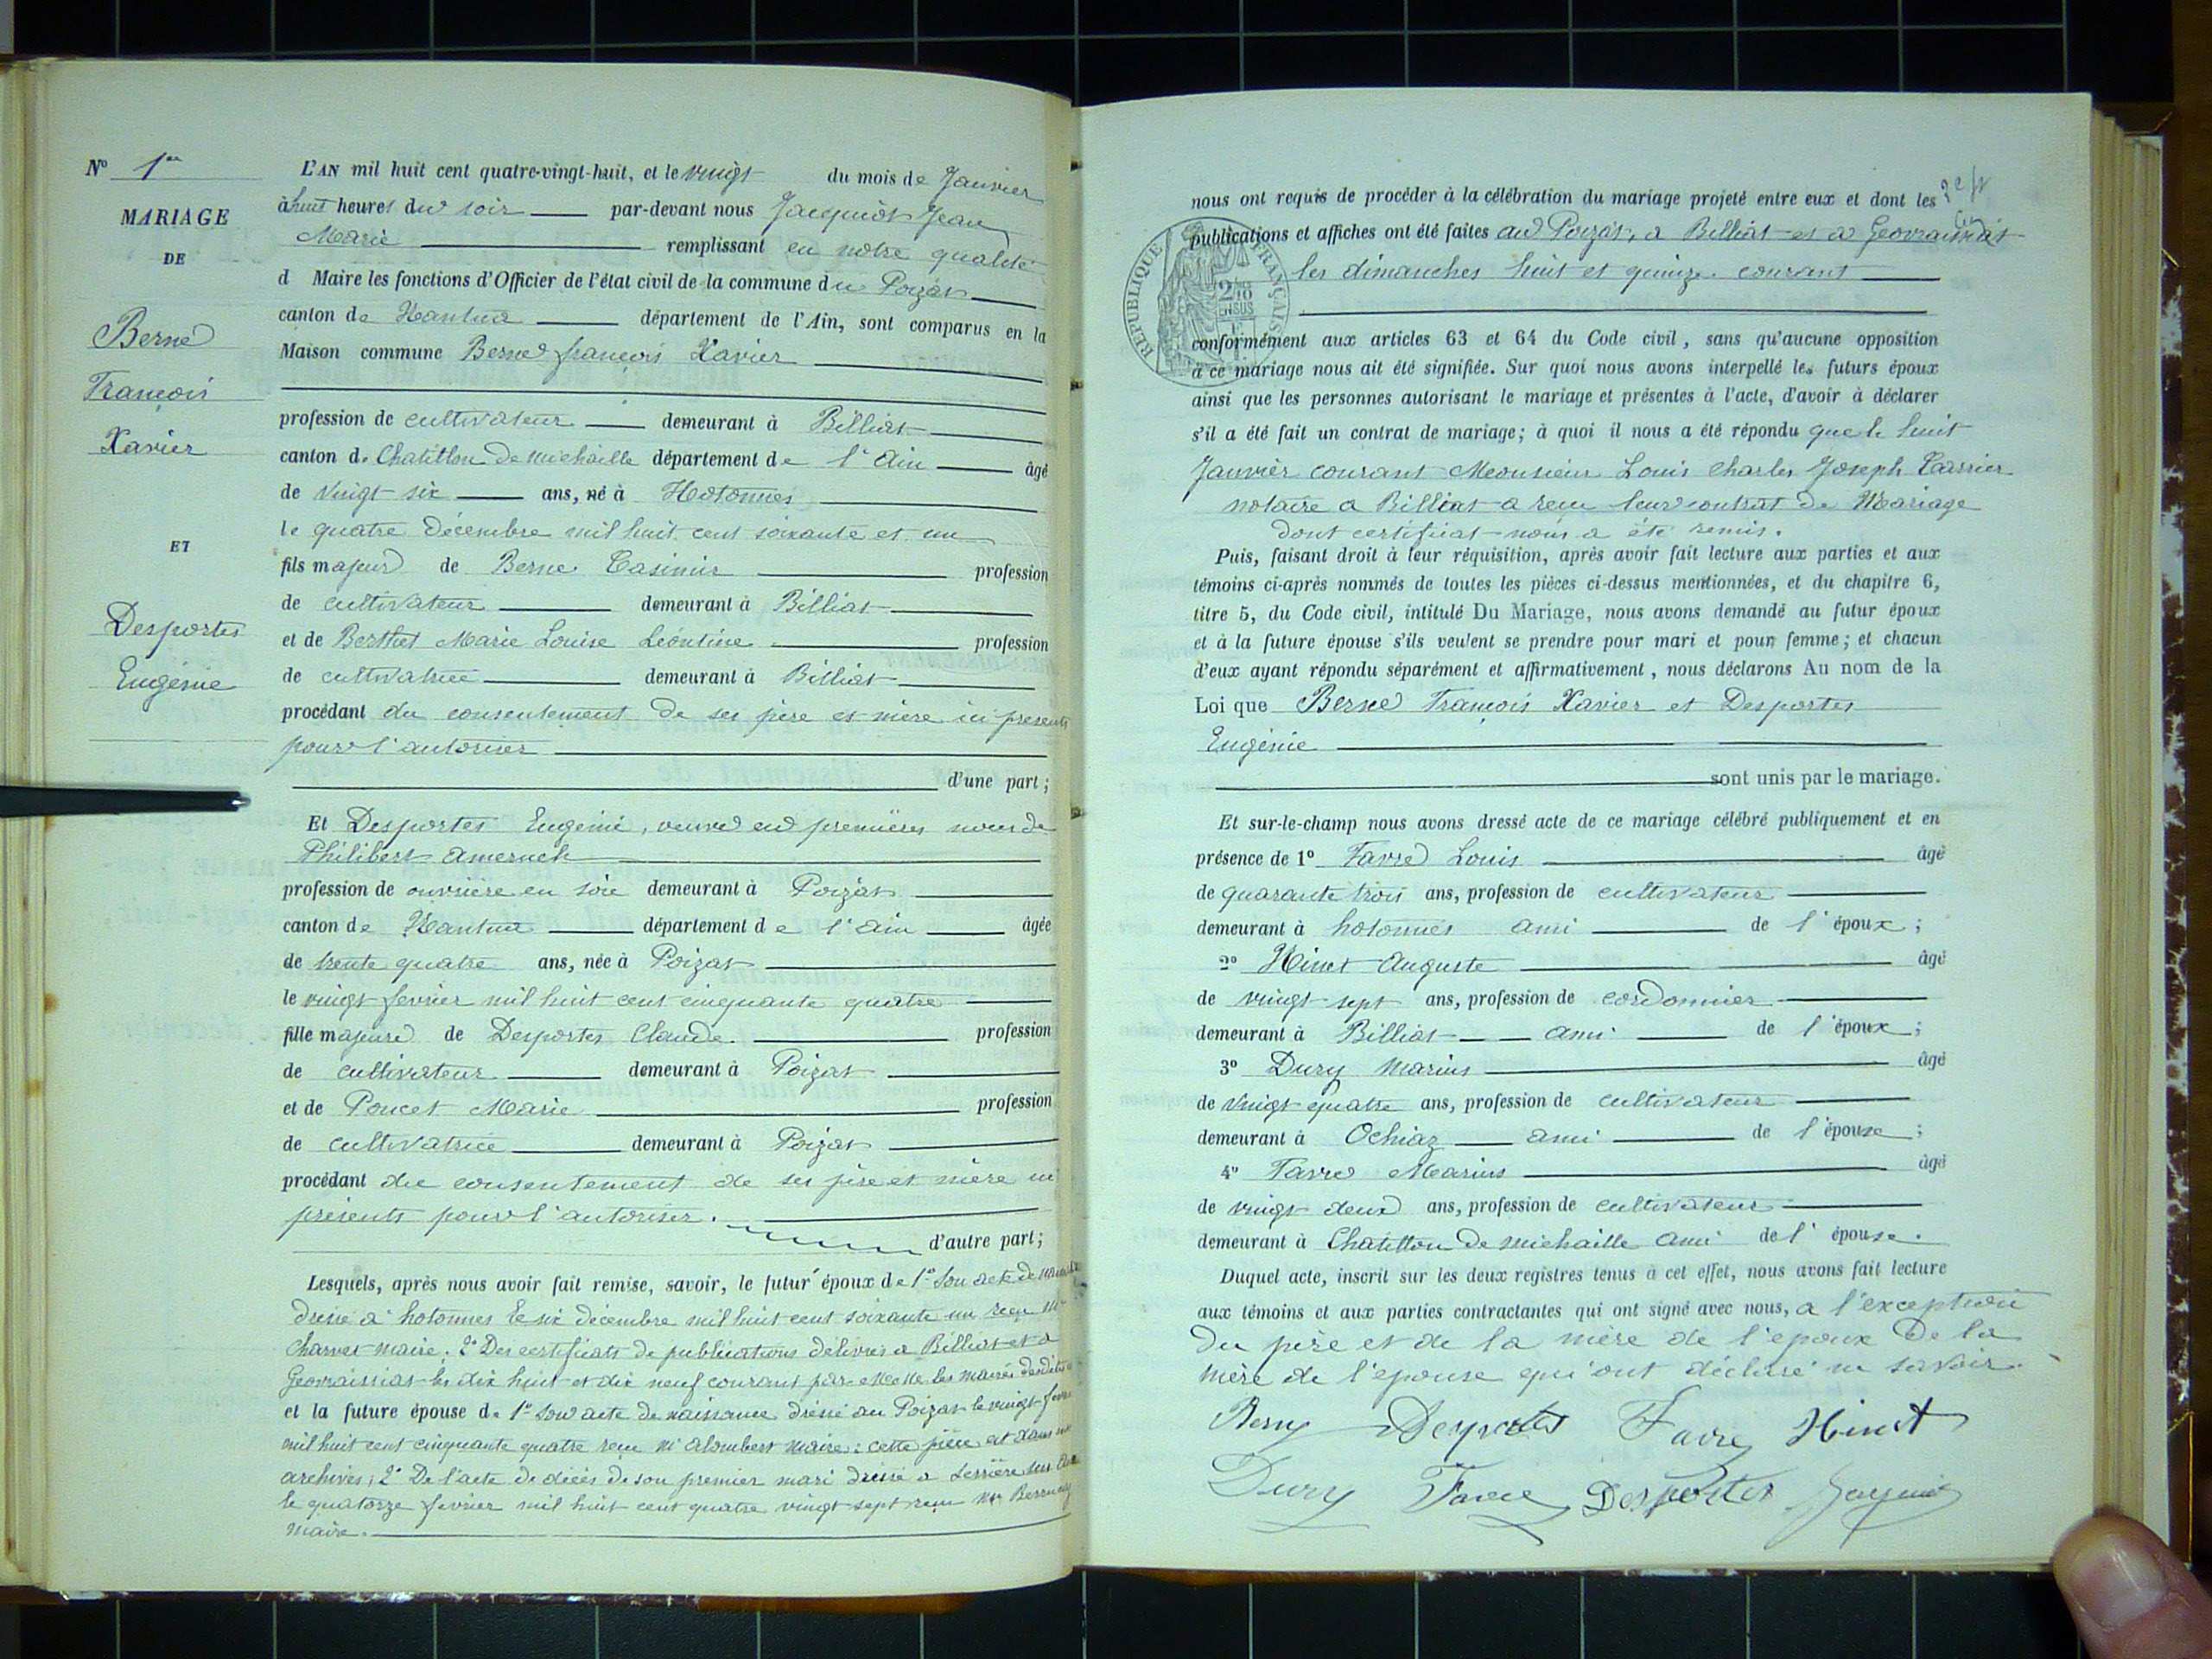 N° 1er
MARIAGE
DE
Berne
François
Xavier
ET
Desportes
Eugénie
L'AN mil huit cent quatre-vingt-huit, et le vingt du mois de Janvier
à huit heures du soir par-devant nous Jacquiot Jean
Marie remplissant en notre qualité
d Maire les fonctions d'Officier de l'état civil de la commune du Poizat
canton de Nantua département de l'Ain, sont comparus en la
Maison commune Berne françois Xavier
profession de cultivateur demeurant à Billiat
canton de Chatillon de michaille département de l'Ain âgé
de vingt six ans, né à Hotonnes
le quatre décembre mil huit cent soixante et un
fils majeur de Berne Casimir profession
de cultivateur demeurant à Billiat
et de Berthet Marie Louise Léontine profession
de cultivatrice demeurant à Billiat
procédant du consentement de ses père et mère ici présents
pour l'autoriser
d'une part;
Et Desportes Eugénie, veuve en premières noces de
Philibert
profession de ouvrière en soie demeurant à Poizat
canton de Nantua département de l'Ain âgée
de trente quatre ans, née à Poizat
le vingt fevrier mil huit cent cinquante quatre
fille majeure de Desportes Claude profession
de cultivateur demeurant à Poizat
et de Poncet Marie profession
de cultivatrice demeurant à Poizat
procédant du consentement de ses père et mère ici
présents pour l'autoriser.
d'autre part;
Lesquels, après nous avoir fait remise, savoir, le futur époux de 1° Son acte de naissance
dressé à hotonnes le six décembre mil huit cent soixante un reçu Mr
Charvet maire; 2° Des certificats de publications délivrés a Billiat et a
Geovraissiat les dix huit et dix neuf courant par MM les maires desdites
et la future épouse de 1° Son acte de naissance dressé au Poizat le vingt fevrier
mil huit cent cinquante quatre reçu Mr Alombert maire: cette pièce est dans nos
archives; 2° De l'acte de décès de son premier mari dressé a Serrières sur Ain
le quatorze fevrier mil huit cent quatre vingt sept reçu Mr
maire.
nous ont requis de procéder à la célébration du mariage projeté entre eux et dont les
publications et affiches ont été faites au Poizat, a Billiat et a Geovraissiat
les dimanches huit et quinze courant
RÉPUBLIQUE FRANÇAISE
conformément aux articles 63 et 64 du Code civil, sans qu'aucune opposition
à ce mariage nous ait été signifiée. Sur quoi nous avons interpellé les futurs époux
ainsi que les personnes autorisant le mariage et présentes à l'acte, d'avoir à déclarer
s'il a été fait un contrat de mariage; à quoi il nous a été répondu que le huit
Janvier courant Monsieur Louis Charles Joseph
notaire a Billiat a reçu leur contrat de Mariage
dont certificat nous a été remis.
Puis, faisant droit à leur réquisition, après avoir fait lecture aux parties et aux
témoins ci-après nommés de toutes les pièces ci-dessus mentionnées, et du chapitre 6,
titre 5, du Code civil, intitulé Du Mariage, nous avons demandé au futur époux
et à la future épouse s'ils veulent se prendre pour mari et pour femme; et chacun
d'eux ayant répondu séparément et affirmativement, nous déclarons Au nom de la
Loi que Berne François Xavier et Desportes
Eugénie
sont unis par le mariage.
Et sur-le-champ nous avons dressé acte de ce mariage célébré publiquement et en
présence de 1° Favre Louis âgé
de quarante trois ans, profession de cultivateur
demeurant à hotonnes ami de l'époux;
2° Hinct Auguste âgé
de vingt-sept ans, profession de cordonnier
demeurant à Billiat ami de l'époux;
3° Dury Marius âgé
de vingt quatre ans, profession de cultivateur
demeurant à Ochiaz ami de l'épouse;
4° Favre Marius âgé
de vingt deux ans, profession de cultivateur
demeurant à Chatillon de michaille ami de l'épouse.
Duquel acte, inscrit sur les deux registres tenus à cet effet, nous avons fait lecture
aux témoins et aux parties contractantes qui ont signé avec nous, a l'exception
du père et de la mère de l'époux de la
mère de l'épouse qui ont déclaré ne savoir.
Desportes Favre Hinct
Dury Favre Desportes